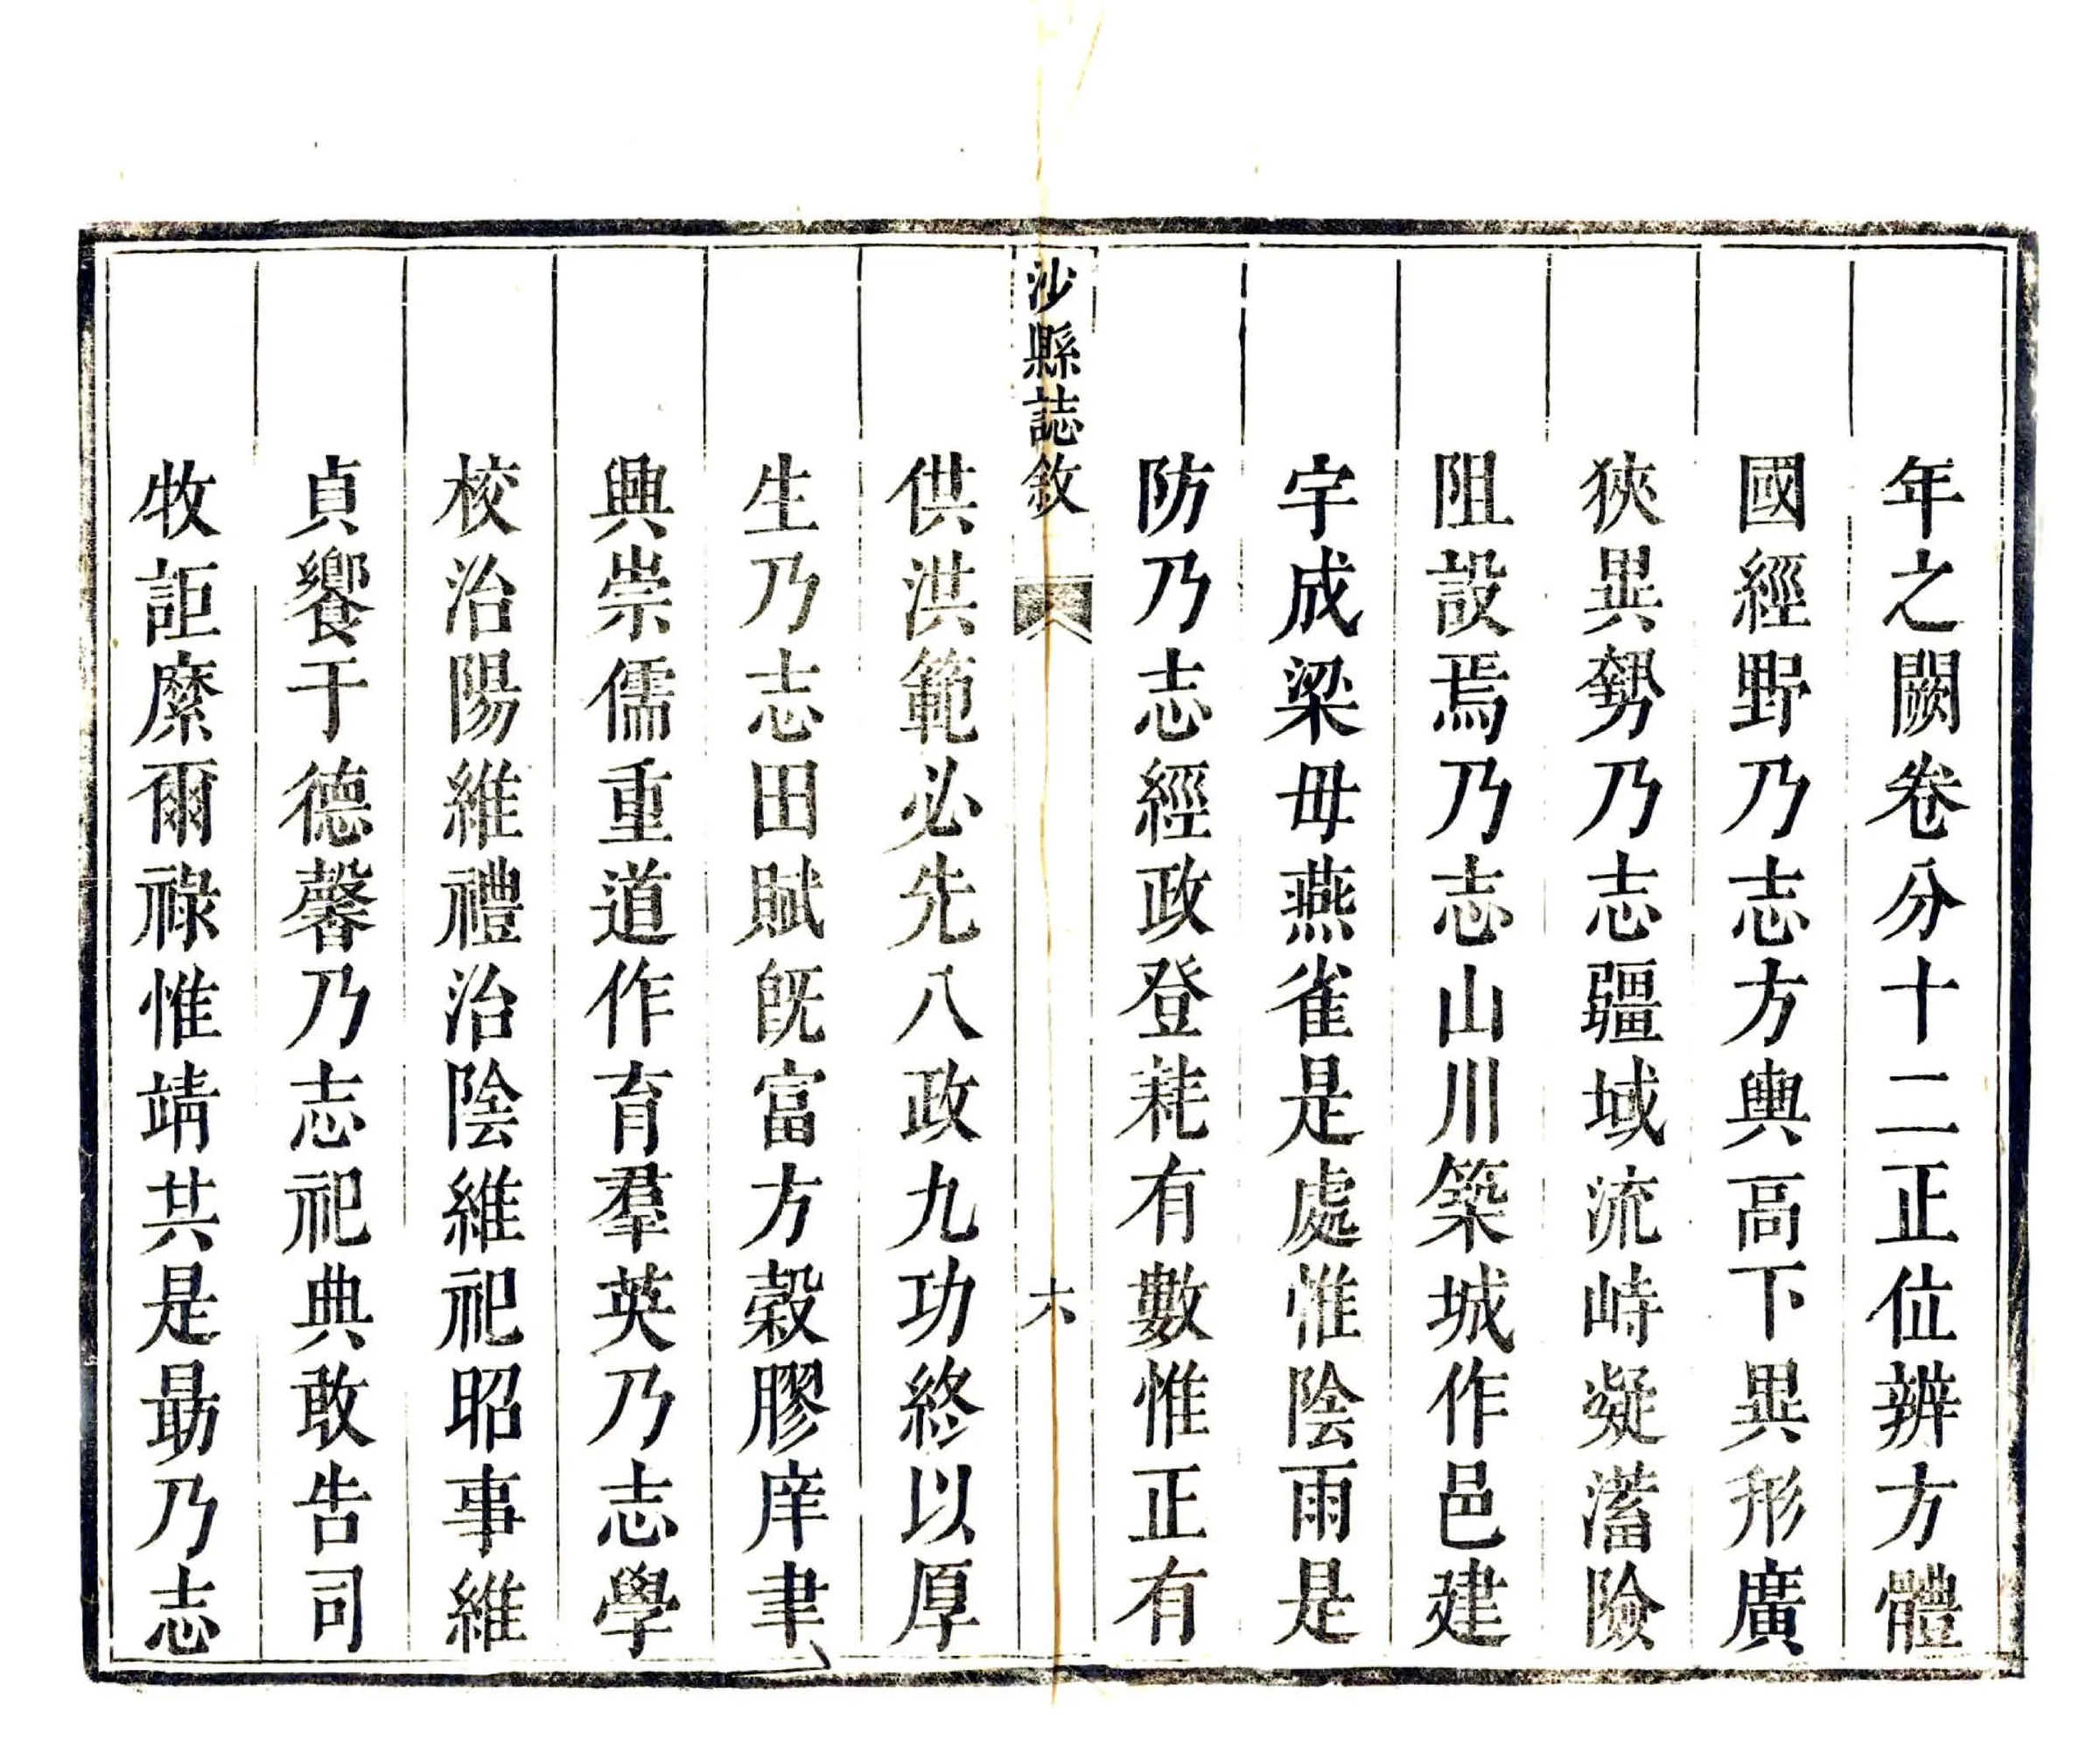 年之闕卷分十二正位辨方體
國經野乃志方輿高下異形廣
狹異勢乃志疆域流峙凝滀險
阻設焉乃志山川築城作邑建
宇成梁毋燕雀是處惟陰雨是
防乃志經政登耗有數惟正有
沙縣誌敘
六
供洪範必先八政九功終以厚
生乃志田賦旣富方穀膠庠聿
興崇儒重道作育羣英乃志學
校治陽維禮治陰維祀昭事維
貞饗于德馨乃志祀典敢告司
牧詎縻爾祿惟靖共是勗乃志